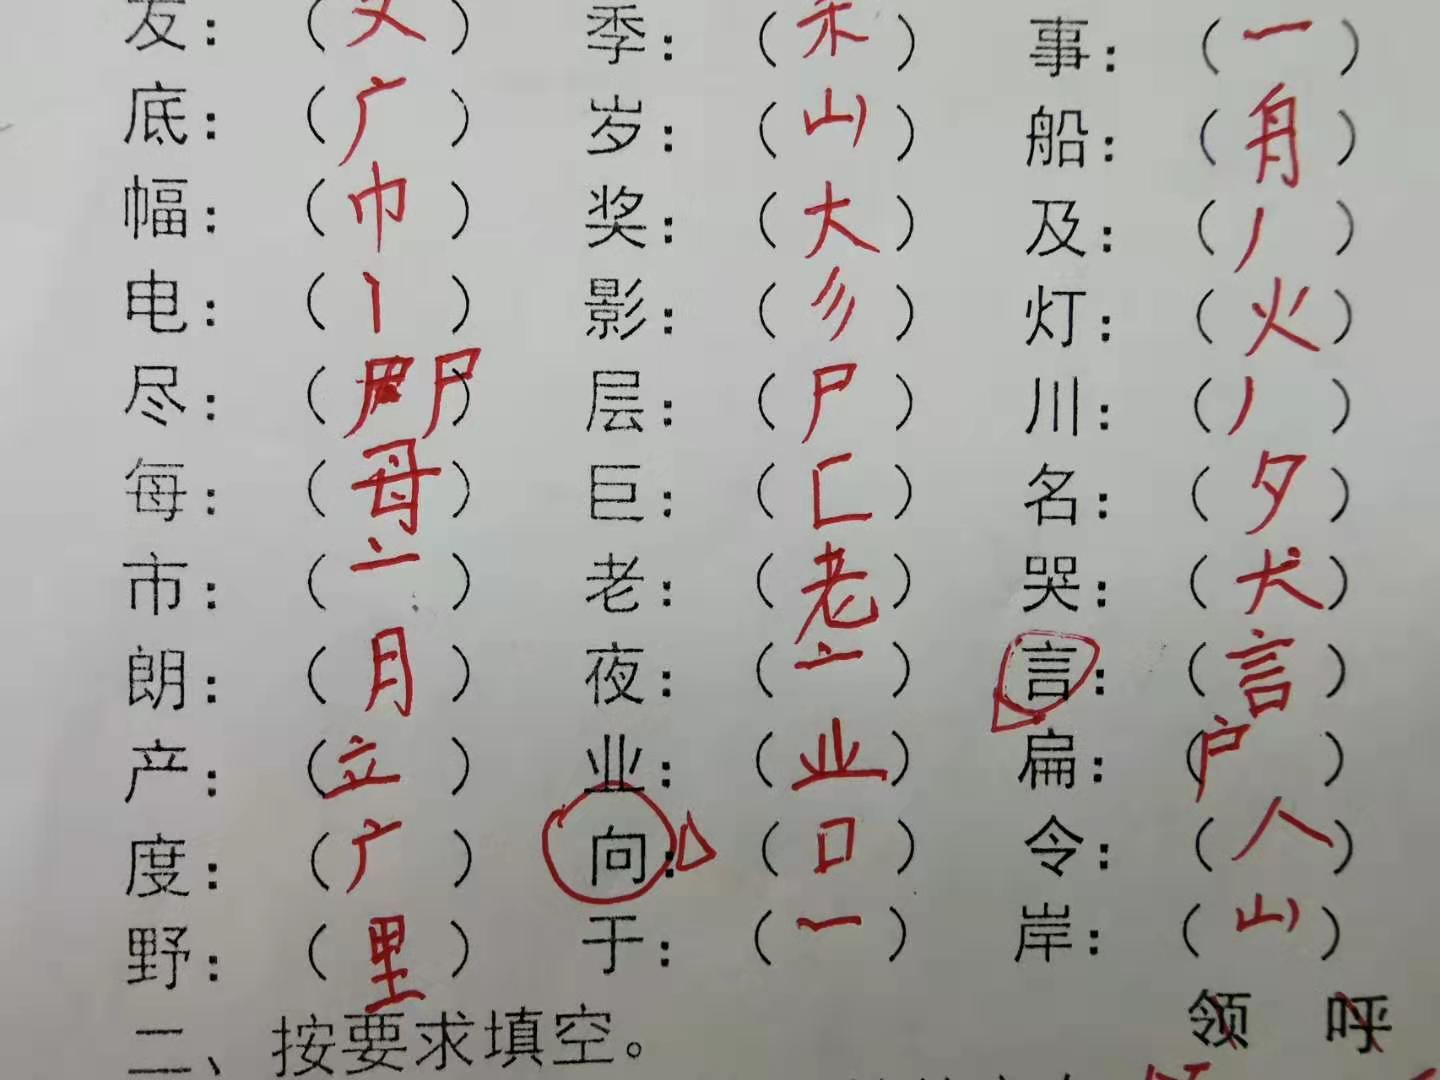 发：（又） 季：（禾） 事：（一）
底：（广） 岁：（山） 船：（舟）
幅：（巾） 奖：（大） 及：（丿）
电：（丨） 影：（彡） 灯：（火）
尽：（尸） 层：（尸） 川：（丿）
每：（母） 巨：（匚） 名：（夕）
市：（亠） 老：（老） 哭：（犬）
朗：（月） 夜：（亠） 言：（言）
产：（立） 业：（业） 扁：（户）
度：（广） 向：（口） 令：（人）
野：（里） 于：（一） 岸：（山）
领 呼
二、按要求填空。